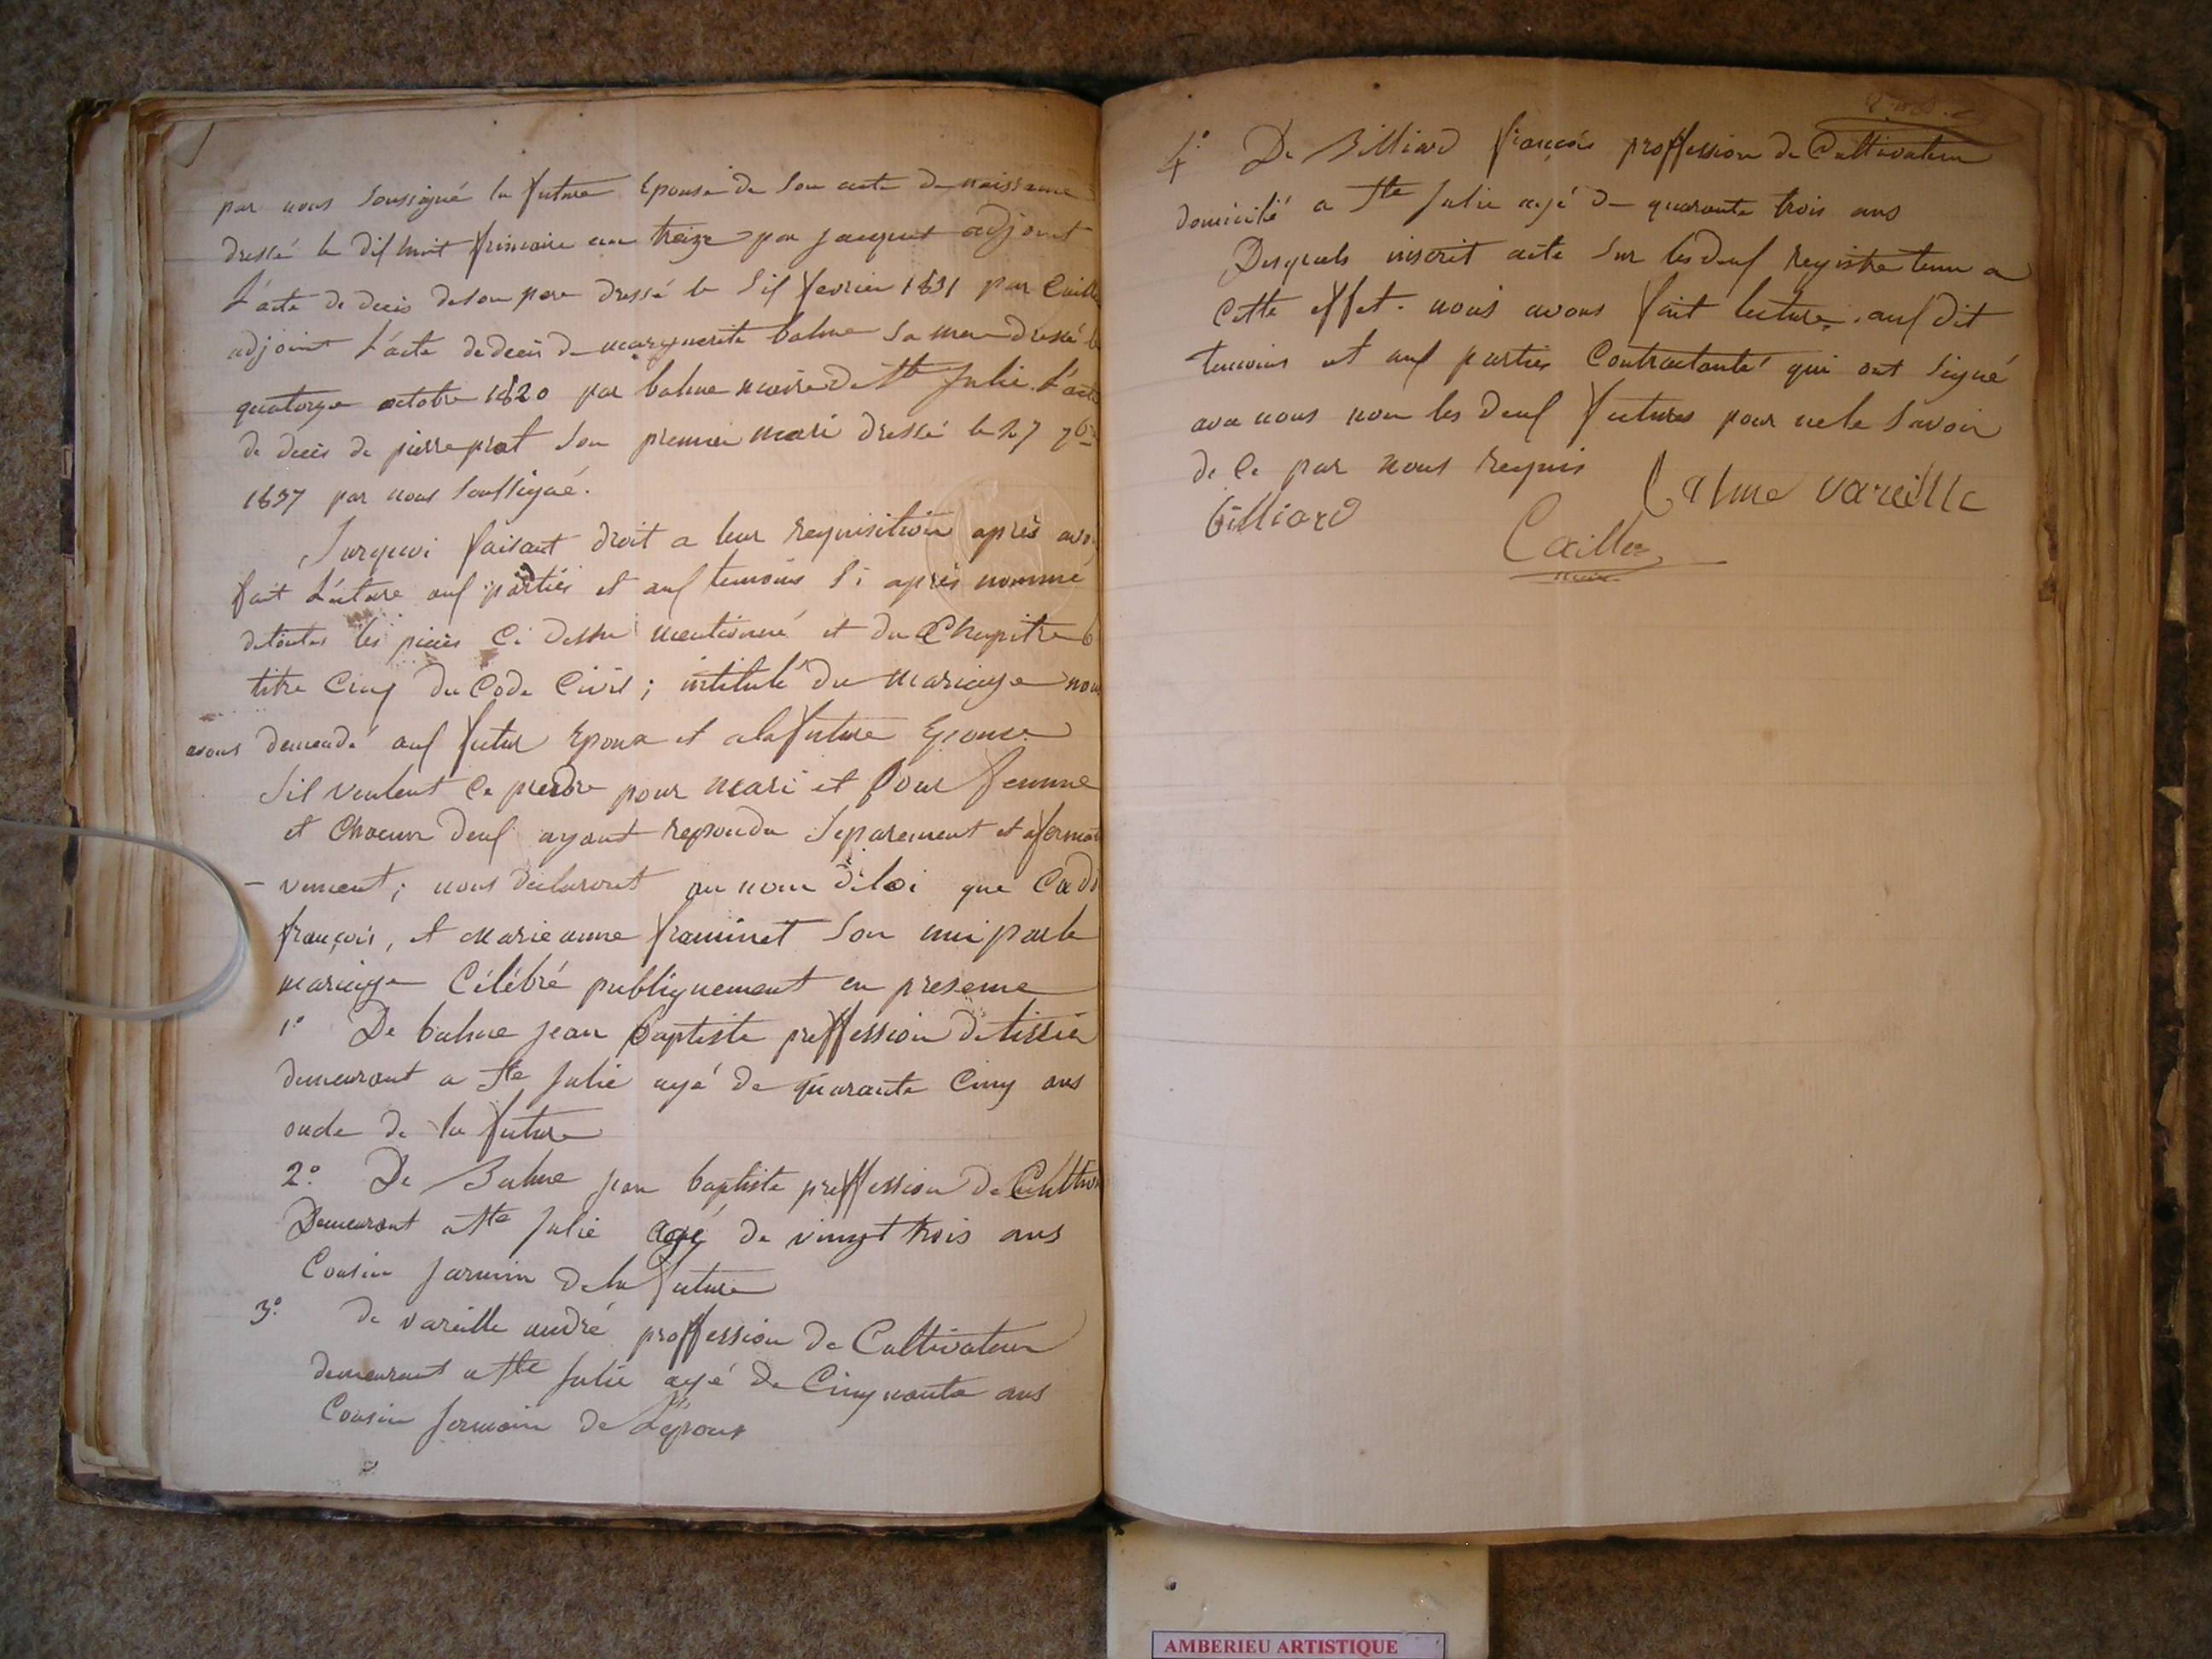 par nous soussigné la future Epouse de Son acte de naissance
dressé le dif huit frimaire an treize par jacquet adjoint
L'acte de deces de son pere dressé le Sif fevrier 1831 par Caille
adjoint L'acte de deces de marguerite balme Sa mere dressé le
quatorze octobre 1820 par balme maire de Ste Julie. L'acte
de deces de pierre prat Son premier mari dressé le 27 7bre
1837 par nous Soussigné.
Surquoi faisant droit a leur requisition après avoi
fait Lécture auf parties et auf temoins Si après nommé
detoutes les pièces Ci dessu mentionné et du Chapitre 6
titre Cinq du Code Civil ; intitulé du mariage nous
avons demandé auf futur Epoux et a la future Epouse
Sil veulent Ce prendre pour mari et Pour femme
et Chacun deuf ayant repondu Separement et afermati
- vement ; nous declaront au nom de loi que Cadi
françois, et marie anne framinet Son uni par le
mariage Célébré publiquement en presence
1° De balme jean baptiste proffession de tissier
demeurant a Ste Julie agé de quarante Cinq ans
oncle de la future
2° De Balme jean baptiste proffession de Cultiv
Demeurant a Ste Julie agé de vingt trois ans
Cousin jarmin de la future
3° de vareille andré proffession de Cultivateur
demeurant a Ste Julie agé de Cinquante ans
Cousin jermain de L'Epoux
4° De Billiard françois proffession de Cultivateur
domicilié a Ste Julie agé de quarante trois ans
Desquels inscrit acte Sur les deuf registre tenu a
Cette effet. nous avons fait lecture. auf dit
temoins et auf parties Contractante qui ont Signé
avec nous non les deuf futures pour ne le Savoir
de Ce par nous requis
billiard Balme vareille
Caille
maire
AMBERIEU ARTISTIQUE